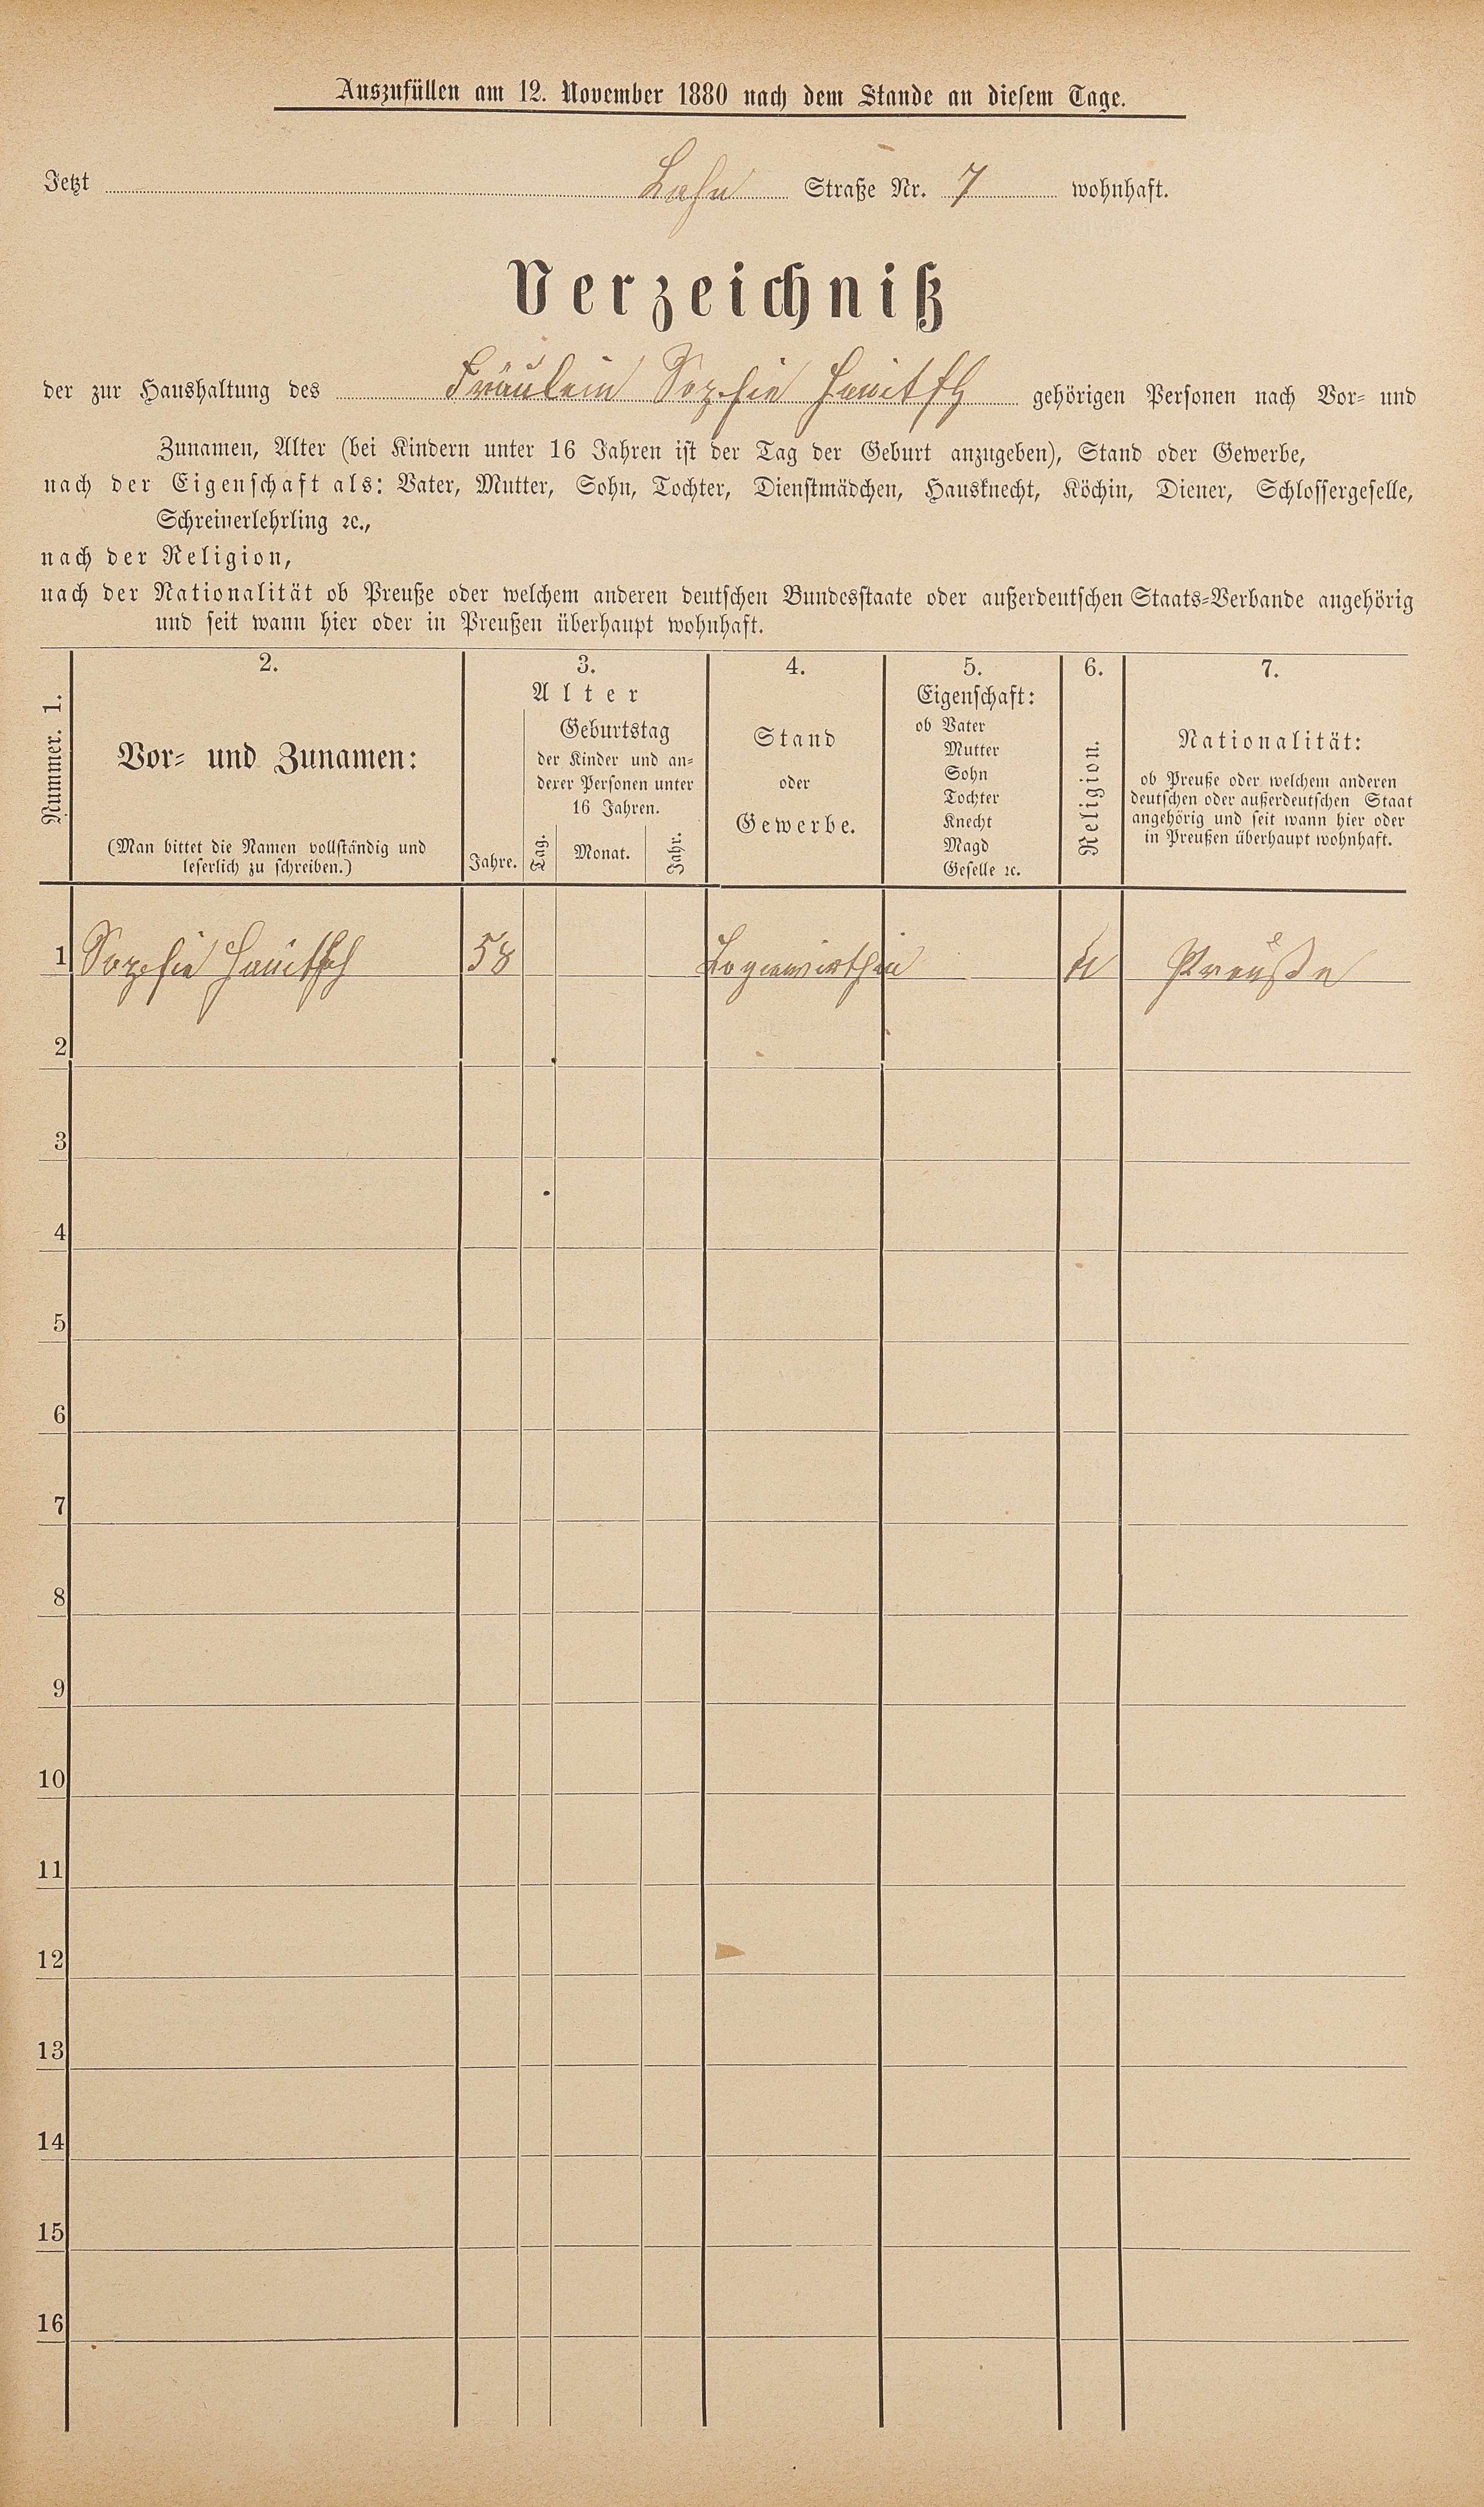 Auszufüllen am 12. November 1880 nach dem Stande an diesem Tage.
Jetzt Lahn Straße Nr. 7 wohnhaft.
Verzeichniß
der zur Haushaltung des Fräulein Sophie gehörigen Personen nach Vor- und
Zunamen, Alter (bei Kindern unter 16 Jahren ist der Tag der Geburt anzugeben), Stand oder Gewerbe,
nach der Eigenschaft als: Vater, Mutter, Sohn, Tochter, Dienstmädchen, Hausknecht, Köchin, Diener, Schlossergeselle,
Schreinerlehrling ꝛc.,
nach der Religion,
nach der Nationalität ob Preuße oder welchem anderen deutschen Bundesstaate oder außerdeutschen Staats-Verbande angehörig
und seit wann hier oder in Preußen überhaupt wohnhaft.
Nummer. 1.
2.
Vor- und Zunamen:
(Man bittet die Namen vollständig und
leserlich zu schreiben.)
3.
Alter
Jahre.
Geburtstag
der Kinder und an-
derer Personen unter
16 Jahren.
Tag.
Monat.
Jahr.
4.
Stand
oder
Gewerbe.
5.
Eigenschaft:
ob Vater
Mutter
Sohn
Tochter
Knecht
Magd
Geselle ꝛc.
6.
Religion.
7.
Nationalität:
ob Preuße oder welchem anderen
deutschen oder außerdeutschen Staat
angehörig und seit wann hier oder
in Preußen überhaupt wohnhaft.
1 Sophie 58 Logenwirthin Preuße
2
3
4
5
6
7
8
9
10
11
12
13
14
15
16